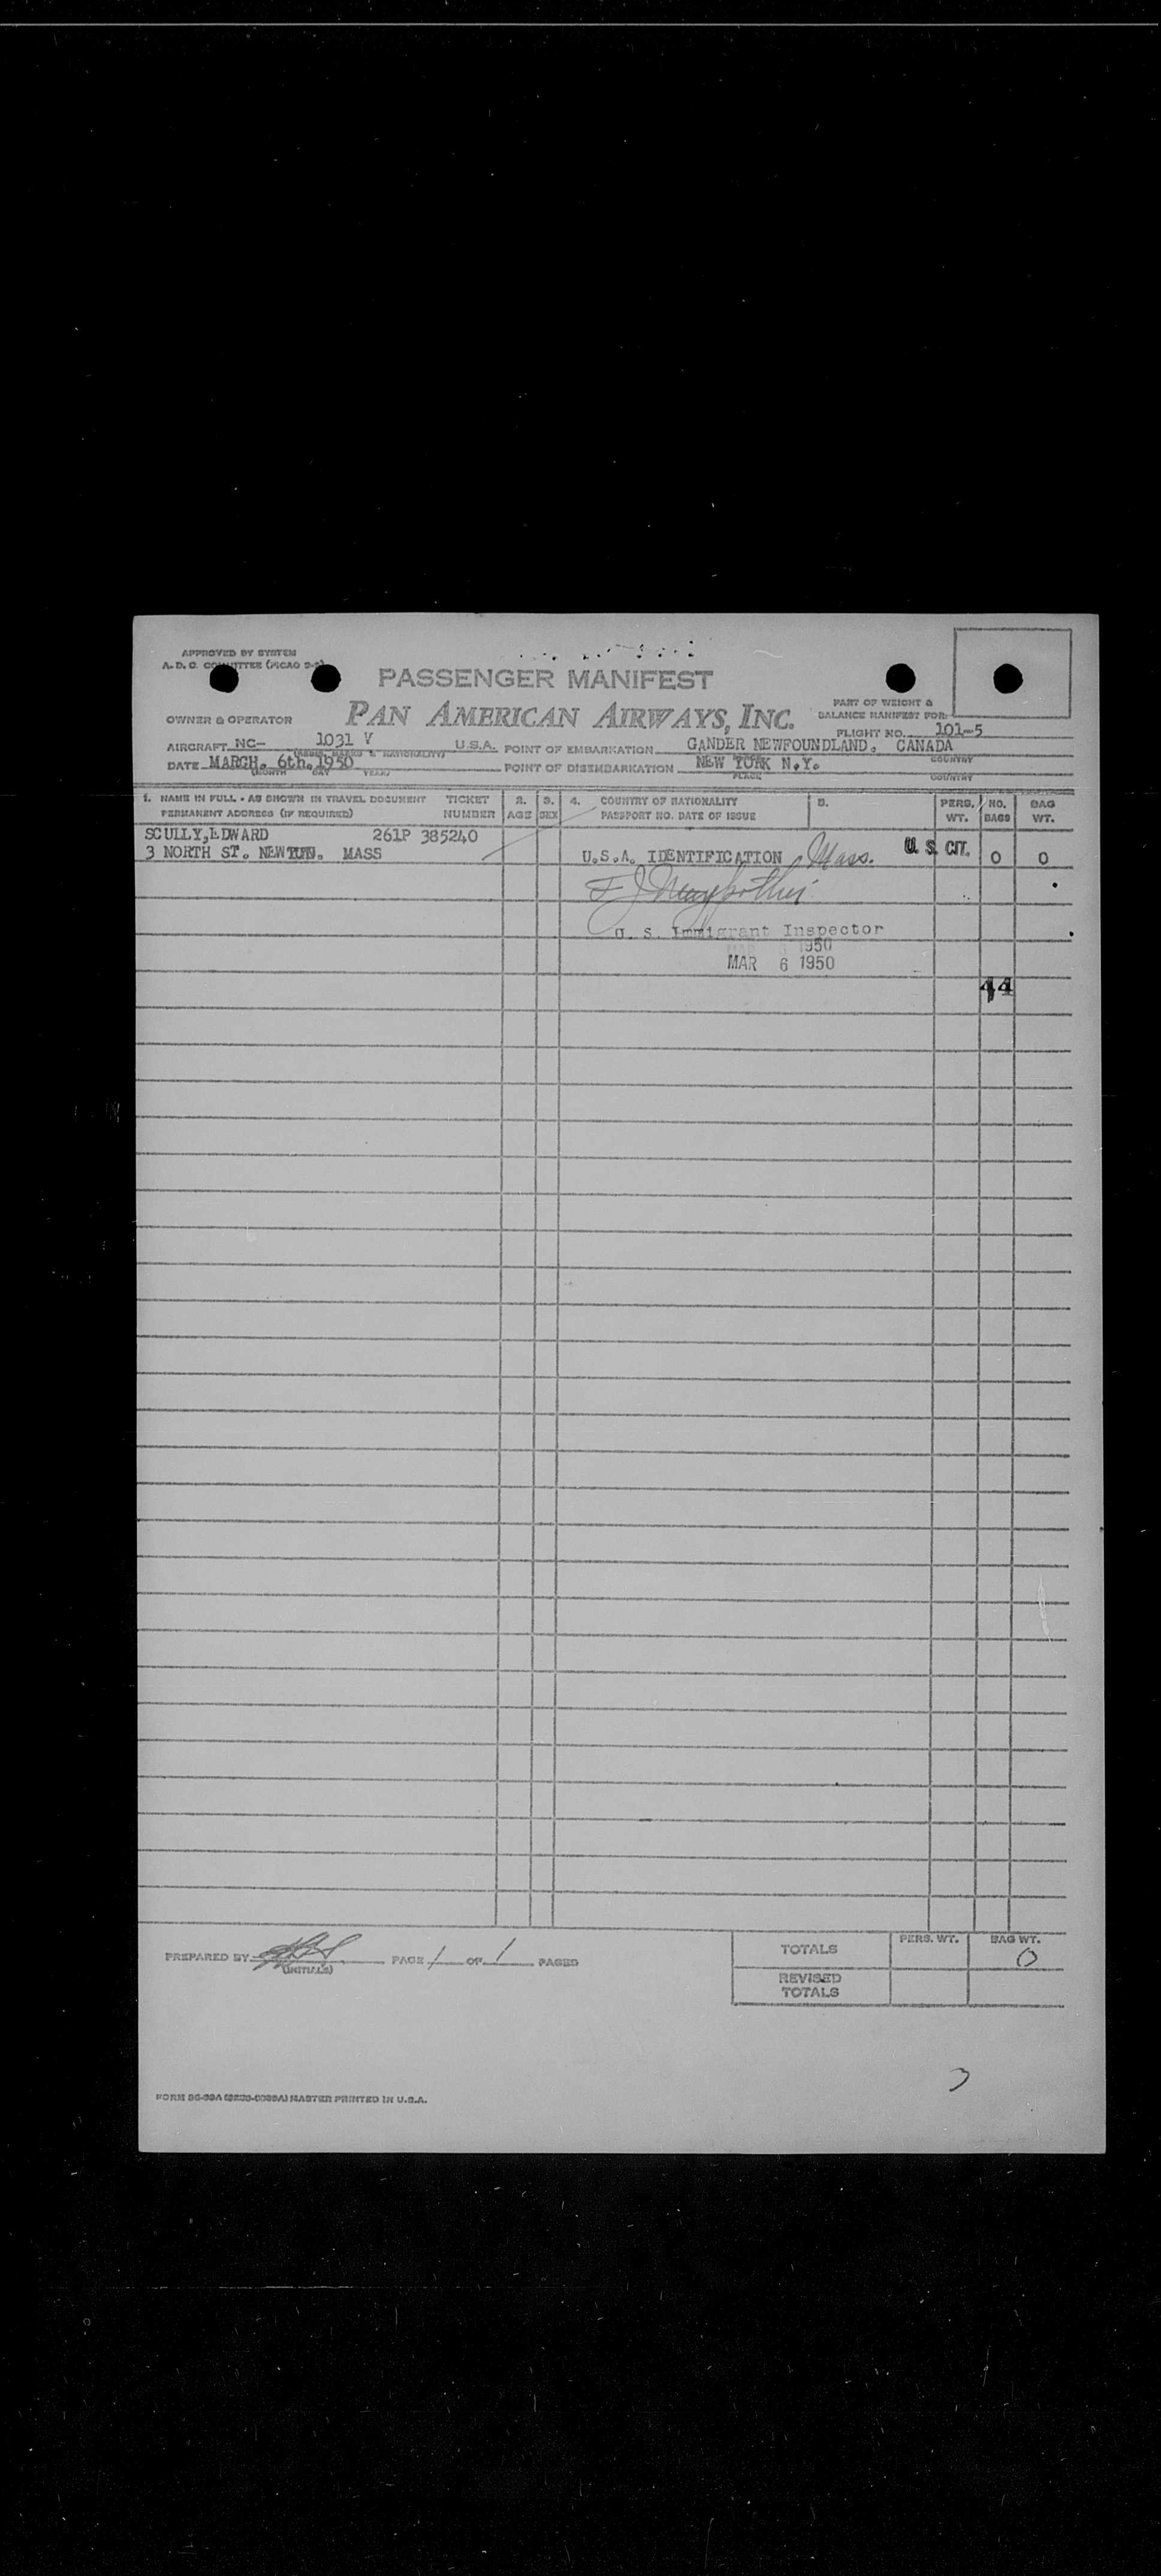 APPROVED BY SYSTEM
A. D. C. COMMITTEE
PASSENGER MANIFEST
PAN AMERICAN AIRWAYS, INC.
PART OF WEIGHT &
BALANCE MANIFEST FOR:
OWNER & OPERATOR
FLIGHT NO. 101-5
AIRCRAFT NC- 1031 V U.S.A. POINT OF EMBARKATION GANDER NEWFOUNDLAND. CANADA
(REGIS. MARKS & NATIONALITY) COUNTRY
DATE MARCH. 6th. 1950 POINT OF DISEMBARKATION NEW YORK N.Y.
(MONTH DAY YEAR) PLACE COUNTRY
1. NAME IN FULL - AS SHOWN IN TRAVEL DOCUMENT TICKET 2. 3. 4. COUNTRY OF NATIONALITY 5. PERS. NO. BAG
PERMANENT ADDRESS (IF REQUIRED) NUMBER AGE SEX PASSPORT NO. DATE OF ISSUE WT. BAGS WT.
SCULLY, EDWARD 261P 385240
3 NORTH ST. NEWTON. MASS U.S.A. IDENTIFICATION Mass. U. S. CIT. 0 0
U. S. Immigrant Inspector
1950
MAR 6 1950
44
PREPARED BY PAGE 1 OF 1 PAGES
(INITIALS)
PERS. WT. BAG WT.
TOTALS 0
REVISED
TOTALS
FORM MASTER PRINTED IN U.S.A.